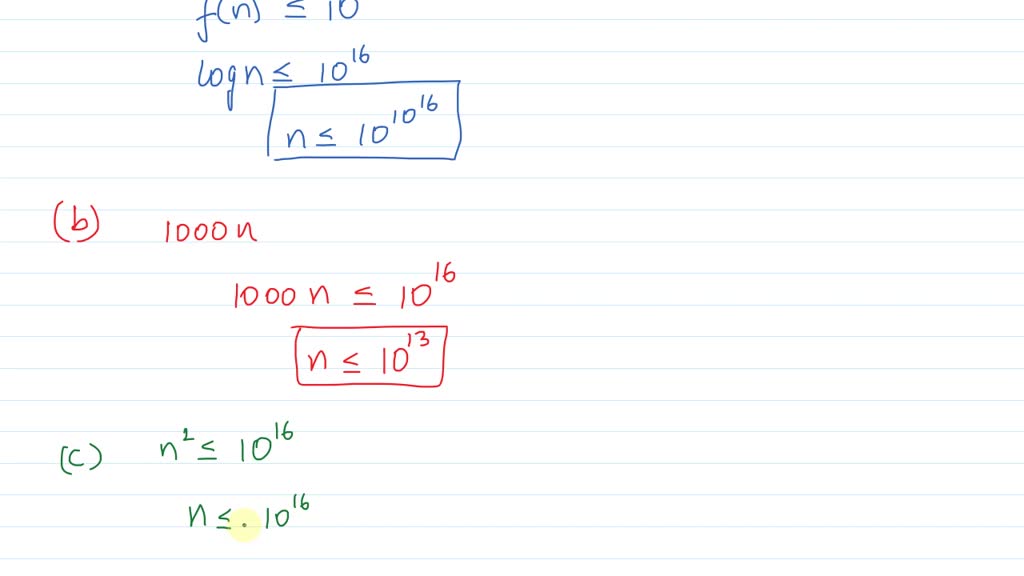 f(n) ≤ 10
log n ≤ 10^16
n ≤ 10^10^16
(b) 1000 n
1000 n ≤ 10^16
n ≤ 10^13
(c) n^2 ≤ 10^16
n ≤ . 10^16